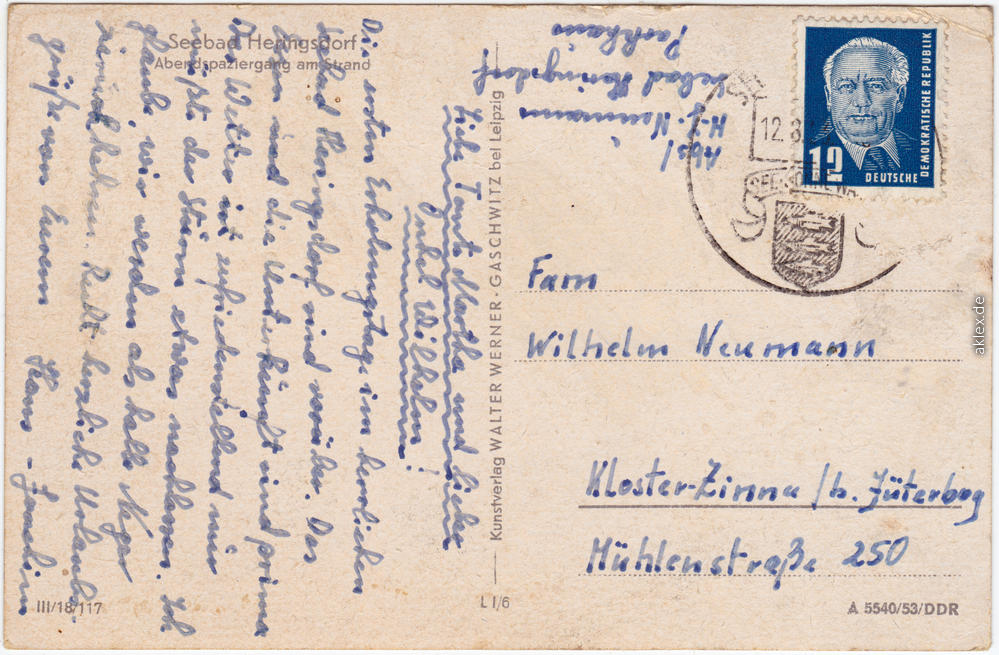 Seebad Heringsdorf
Abendspaziergang am Strand
Abs/
H-J. Neumann
Seebad Heringsdorf
Parkhaus
Liebe Tante Martha und lieber
Onkel Wilhelm!
Die ersten Erholungstage im herrlichen
Seebad Heringsdorf sind vorüber. Das
Essen und die Unterkunft sind prima
Das Wetter ist zufriedenstellend nur
müßte der Sturm etwas nachlassen. Ich
glaube, wir werden als halbe Neger
zurückkehren. Recht herzliche Urlaubs-
grüße von Eurem Hans-Joachim
Kunstverlag WALTER WERNER · GASCHWITZ bei Leipzig
12
DEUTSCHE
DEMOKRATISCHE REPUBLIK
12.8.
Fam
Wilhelm Neumann
Kloster-Zinna / b. Jüterbog
Mühlenstraße 250
III/18/117
L I/6
A 5540/53/DDR
aklex.de